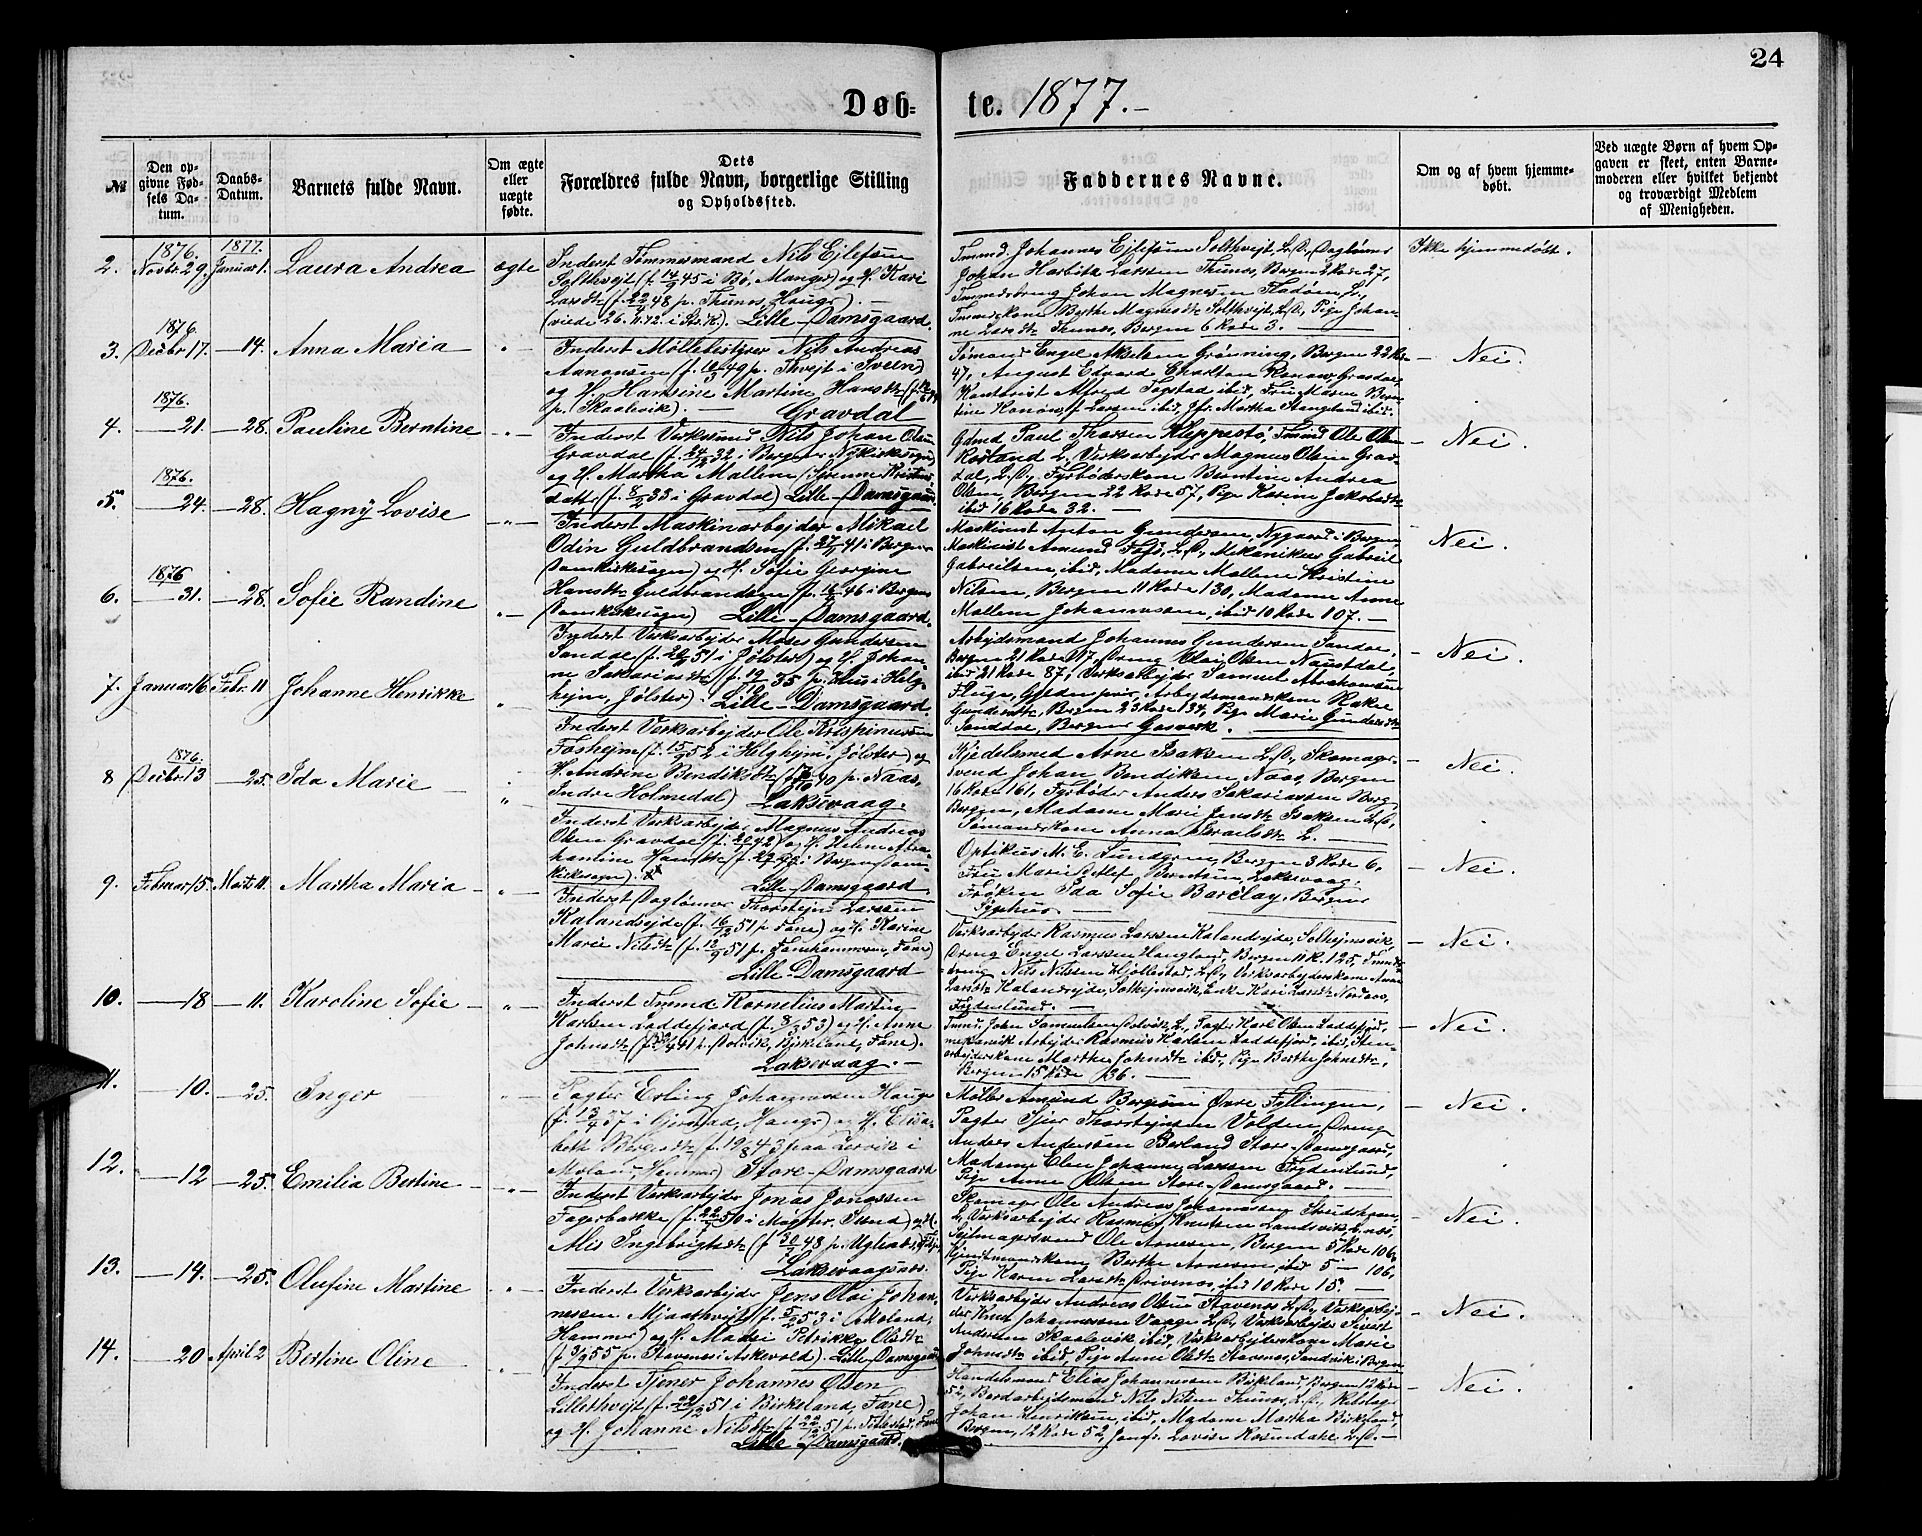 24
Døb= te. 1877.-
№
Den op-
givne Fød-
sels Da-
tum.
Daabs-
Datum.
Barnets fulde Navn.
Om ægte
eller
uægte
fødte.
Dets
Forældres fulde Navn, borgerlige Stilling
og Opholdssted.
Faddernes Navne.
Om og af hvem hjemme-
døbt.
Ved uægte Børn af hvem Op-
gaven er skeet, enten Barne-
moderen eller hvilket bekjendt
og troværdigt Medlem
af Menigheden.
1876. 1877.
2. Novbr. 29. Januar 1. Laura Andrea ægte
Inderst Tømmermand Nils Ejlefsen
Solthvejt (f. 14/9 45 i Bø, Manger) og H. Kari
Larsdtr (f. 22/4 48 p. Thunes, Haugs). -
(viede 26.11.72. i Str. K.). Lille-Damsgaard.
Tmmd. Johannes Ejlefsen Solthvejt, L.D., Dagløner
Johan Harbitz Larssen Thunes, Bergen 2 Rode 27,
Tmmdsdreng Johan Magnesen Fladøen, L.,
Tmmdskone Berthe Magnesdtr Solthvejt, L.D., Pige Johan-
ne Larsdtr Thunes, Bergen 6 Rode 3.
Ikke hjemmedøbt.
1876.
3. Decbr. 17. - 14. Anna Maria - " -
Inderst Møllebestyrer Nils Andreas
Aanonsen (f. 10/3 49 p. Thvejt i Sveen)
og H. Hansine Martine Hansdtr
p. Skaalevik). - Gravdal
Sømand Engel Akselsen Grønning, Bergen 22 Rode
47, August Edvard Charlton Konow, Gravdal,
Kontorist Alfred Fagstad ibid, Fru Maren Bern-
tine Konow f. Larsen ibid, Jfr. Martha Stangeland ibid.
- Nei.
1876.
4. - 21. - 28. Pauline Berntine - " -
Inderst Verkssmed Nils Johan Olsen
Gravdal (f. 24/12 32 i Bergens Nykirkesogn)
og H. Martha Mallene Sjrenne Kristens-
datt. (f. 5/2 35 i Gravdal) Lille-Damsgaard.
Gdmd Paul Thorsen Kleppestø, Tmmd Ole Olsen
Røsland L., Verksarbejder Magnus Olsen Grav-
dal, L.D., Fyrbøderskone Berntine Andrea
Olsen, Bergen 22 Rode 57, Pige Karine Jakobsdtr
ibid 16 Rode 32. -
- Nei.
1876.
5. - 24. - 28. Hagny Lovise - " -
Inderst Maskinarbejder Mikael
Odin Guldbrandsen (f. 27/7 41 i Bergens
Domkirkesogn) og H. Sofie Georgine
Hansdtr Guldbrandsen (f. 16/2 46 i Bergens
Domkirkesogn) Lille-Damsgaard.
Maskinist Anton Gundersen, Nygaard i Bergen,
Maskinist Amund Foss, L.D., Mekanikus Gabriel
Gabrielsen, ibid, Madame Mallene Kristine
Nilsen, Bergen 11 Rode 130, Madame Anne
Mallene Johannessen, ibid 10 Rode 107. -
Nei.
1876
6. - 31. - 28. Sofie Randine " -
Inderst Verksarbejder Moses Gundersen
Sandal (f. 26/2 51 i Jølster) og H. Johan-
ne Sakariasdtr (f. 19/10 35 p. Hus i Helg-
hejm, Jølster). Lille-Damsgaard.
Arbejdsmand Johannes Gundersen Sandal,
Bergen 21 Rode 117, Dreng Olai Olsen Naustdal,
ibid 21 Rode 87, Verksarbejder Samuel Abrahamsen
Fluge, Gyldenpris, Arbejdsmandskone Rakel
Gundersdtr, Bergen 23 Rode 134, Pige Marie Gundersdtr
Sandal, Bergens Gasverk.
- Nei.
7. Januar 16 Febr. 11 Johanne Henrikke "
Inderst Verksarbejder Ole Krispinussen
Foshejm (f. 15/9 52 i Helghejm, Jølster) og
H. Andrine Bendiksdtr p. Naas,
Indre Holmedal) Laksevaag.
Kjedelsmed Arne Isaksen L.D., Skomager-
svend Johan Bendiksen, Naas, Bergen
16 Rode 161, Fyrbøder Anders Sakariassen Berg,
Bergen, Madame Marie Jensdtr Isaksen L.D.,
Sømandskone Anna Israelsdtr L. -
- Nei.
1876.
8 Decbr. 13 - 25. Ida Marie - " -
Inderst Verksarbejder Magnus Andreas
Olsen Gravdal og H. Helene Abra-
hamine Hansdtr i Bergens Dom-
kirkesogn). Lille-Damsgaard.
Optikus M. E. Lundgren, Bergen 3 Rode 6,
Fru Marie Detlef Berntsen, Laksevaag,
Frøken Ida Sofie Barclay, Bergens
Syghus -
- Nei.
9. Februar 15. Marts 11. Martha Maria - " -
Inderst Dagløner Thorstejn Larssen
Kalandsejde (f. 16/2 51 p. Fane) og H. Karine
Marie Nilsdtr (f. 12/9 51 p. Fanehammeren, Fane)
Lille-Damsgaard
Verksarbejder Rasmus Larssen Kalandsejde, Solhejmsvik,
Dreng Engel Larssen Haugland, Bergen 11 R. 125, Tmmds-
dreng Nils Nilsen Hjellestad, L.D., Verksarbejderskone Anne
Larsdtr Kalandsejde, Solhejmsvik, Enke Kari Larsdtr Nordaas,
Frydenlund. -
- Nei.
10. - 18 - 11. Karoline Sofie - " -
Inderst Tmmd Kornelius Martin
Karlsen Loddefjord (f. 8/3 53) og H. Anne
Johnsdtr p. Dolvik, Birkeland, Fane).
Laksevaag. -
Tmmd. John Samuelsen Dolvik, L., Pagter Karl Olsen Loddefjord,
Arbejder Rasmus Karlsen Loddefjord, ibid, Sten-
arbejderskone Marthe Johnsdtr ibid, Pige Berthe Johnsdtr,
Bergen 15 Rode 136. -
- Nei.
11. - 10. - 25. Inger - " -
Pagter Erling Johannessen Hauge
(f. 13/4 37 i Gjerstad, Haugs) og H. Elisa-
beth (f. 19/8 43 paa Lervik i
Meland, Hammer) Store-Damsgaard
Møller Amund Bergesen Øvre Fyllingen,
Pagter Sjur Thorstejnsen Volden, Dreng
Anders Andersen Børland Store-Damsgaard,
Madame Elen Johanne Larssen Frydenlund,
Pige Anne Olsen Store-Damsgaard. -
- Nei.
12. - 12 - 25. Emilia Bertine - " -
Inderst Verksarbejder Jonas Jonassen
Fagerbakke (f. 22/5 50 i Møgster, Sund) og H.
Alis Ingebrigtsdtr (f 30/1 48 p. Uglenes,
Laksevaagsnes.
Skomager Ole Andreas Johannessen Skudshavn,
L., Verksarbejder Rasmus Knutsen Landsvik L.nes,
Sejlmagersvend Ole Arnesen, Bergen 5 Rode 106,
Kjendtmandskone Berthe Arnesen, ibid 5 - 106,
Pige Karen Larsdtr Drivenes, ibid 10 Rode 15. -
- Nei.
13. - 14. - 25. Olufine Martine " -
Inderst Verksarbejder Jens Olai Johan-
nessen Mjaathvejt (f. 5/2 53 i Meland,
Hammer) og H. Madsi Petrikke Olsdtr
(f. 3/9 55 p. Stavenes i Askevold). Lille-Damsgaard
Verksarbejder Andreas Olsen Stavenes L.D., Verksarbej-
der Knut Johannessen Vaage L.D., Verksarbejder Sivert
Andersen Skaalevik ibid, Verksarbejderskone Marie
Johnsdtr ibid, Pige Anne Olsdtr Stavenes, Sandvik i Bergen
- Nei.
14. - 20 April 2 Bertine Oline - " -
Inderst Tjener Johannes Olsen
Lillethvejt (f. 22/2 51 i Birkeland, Fane)
og H. Johanne Nilsdtr (f. 22/12 51 p. Tillestad, Fane
Lille-Damsgaard.
Handelsmand Elias Johannessen Birkeland, Bergen 12 Rode
52, Bordarbejdsmand Nils Nilsen Thunes, L.D., Rebslager
Johan Henriksen, ibid, Madame Martha Birkeland,
Bergen, 12 Rode 52, Jomfr. Lovise Rosendahl L.D. -
- Nei.